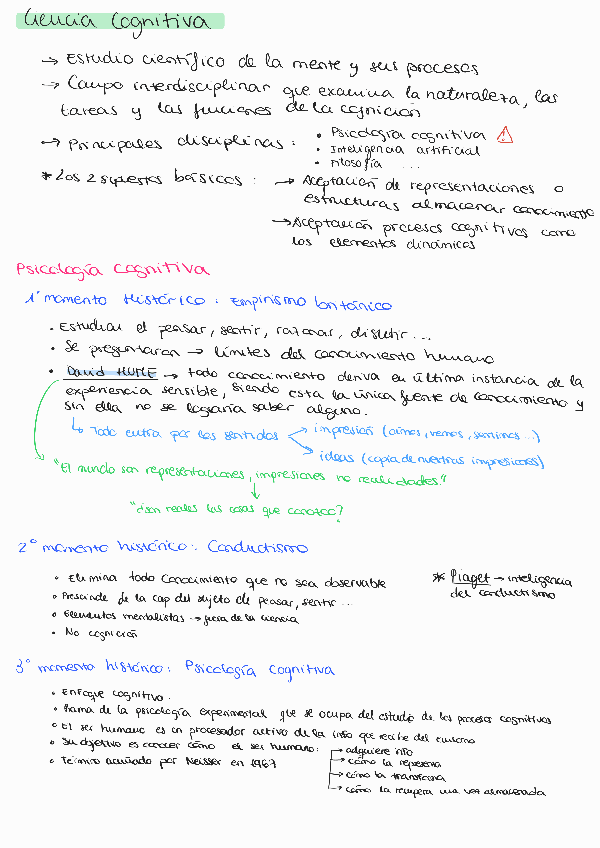 Ciencia Cognitiva
→ Estudio científico de la mente y sus procesos
→ Campo interdisciplinar que examina la naturaleza, las
tareas y las funciones de la cognición
→ Principales disciplinas: • Psicología cognitiva ⚠
• Inteligencia artificial
• Filosofía ...
* Los 2 supuestos básicos: → Aceptación de representaciones o
estructuras almacenar conocimiento
→ Aceptación procesos cognitivos como
los elementos dinámicos
Psicología cognitiva
1º momento histórico: Empirismo británico
• Estudiar el pensar, sentir, razonar, discutir...
• Se preguntaron → límites del conocimiento humano
• David HUME → todo conocimiento deriva en última instancia de la
experiencia sensible, siendo esta la única fuente de conocimiento y
sin ella no se lograría saber alguno.
↳ Todo entra por los sentidos
impresión (oímos, vemos, sentimos...)
ideas (copia de nuestras impresiones)
"El mundo son representaciones, impresiones no realidades."
"¿son reales las cosas que conozco?
2º momento histórico: Conductismo
• Elimina todo conocimiento que no sea observable
* Piaget → inteligencia
del conductismo
• Prescinde de la cap del sujeto de pensar, sentir...
• Elementos mentalistas → fuera de la ciencia
• No cognición
3º momento histórico: Psicología Cognitiva
• Enfoque cognitivo.
• Rama de la psicología experimental que se ocupa del estudio de los procesos cognitivos
• El ser humano es un procesador activo de la info que recibe del entorno
• Su objetivo es conocer cómo el ser humano: → adquiere info
→ cómo la representa
→ cómo la transforma
→ cómo la recupera una vez almacenada
• Término acuñado por Neisser en 1967